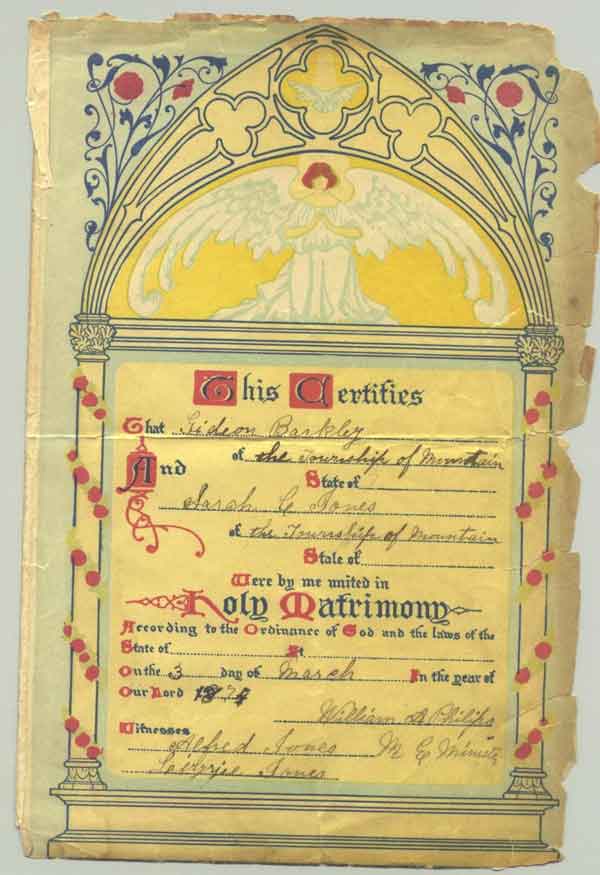 This Certifies
That Gideon Barkley
of the Township of Mountain
And
State of
Sarah C Jones
of the Township of Mountain
State of
Were by me united in
Holy Matrimony
According to the Ordinance of God and the laws of the
State of At
On the 3 day of March In the year of
Our Lord
William Philips
Witnesses
Alfred Jones M E
Jones